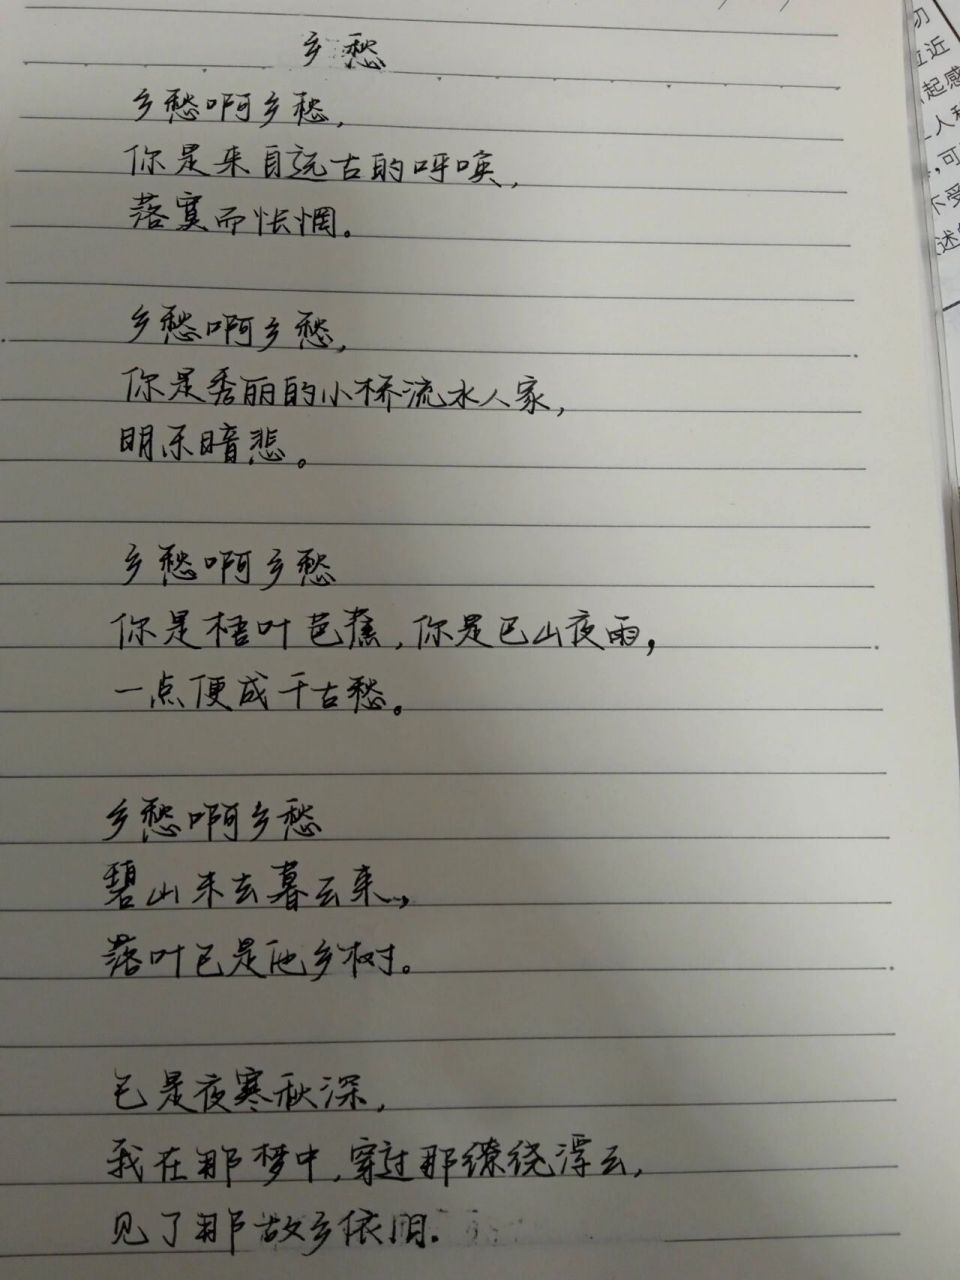 乡愁
乡愁啊乡愁,
你是来自远古的呼唤,
落寞而怅惘。
乡愁啊乡愁,
你是秀丽的小桥流水人家,
明示暗悲。
乡愁啊乡愁
你是梧叶芭蕉,你是巴山夜雨,
一点便成千古愁。
乡愁啊乡愁
碧山未去暮云来,
落叶已是他乡树。
已是夜寒秋深,
我在那梦中,穿过那缭绕浮云,
见了那故乡依旧.
切
拉近
起感
人和
,可
不受
述